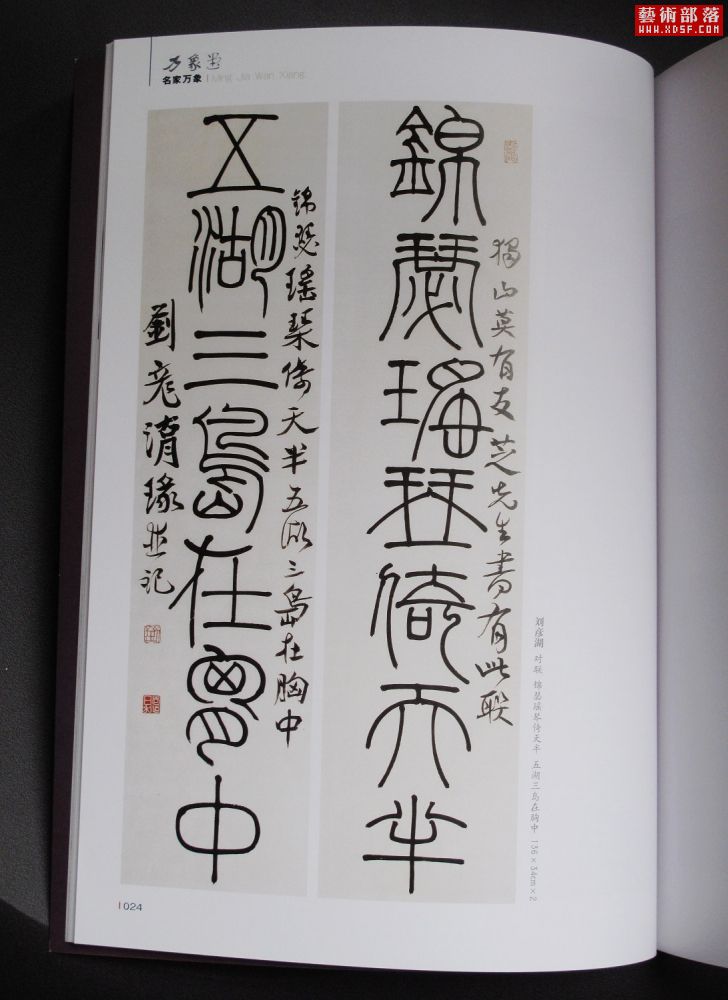 藝術部落
WWW.XDSF.COM
万象
名家万象 Ming Jia Wan Xiang
錦瑟瑤琹倚天半
獨山莫有友芝先生書有此聯
五湖三島在胷中
錦瑟瑶琹倚天半五湖三島在胸中
劉彦湖瑑並記
刘彦湖 对联 锦瑟瑶琴倚天半 五湖三岛在胸中 136×34cm×2
024